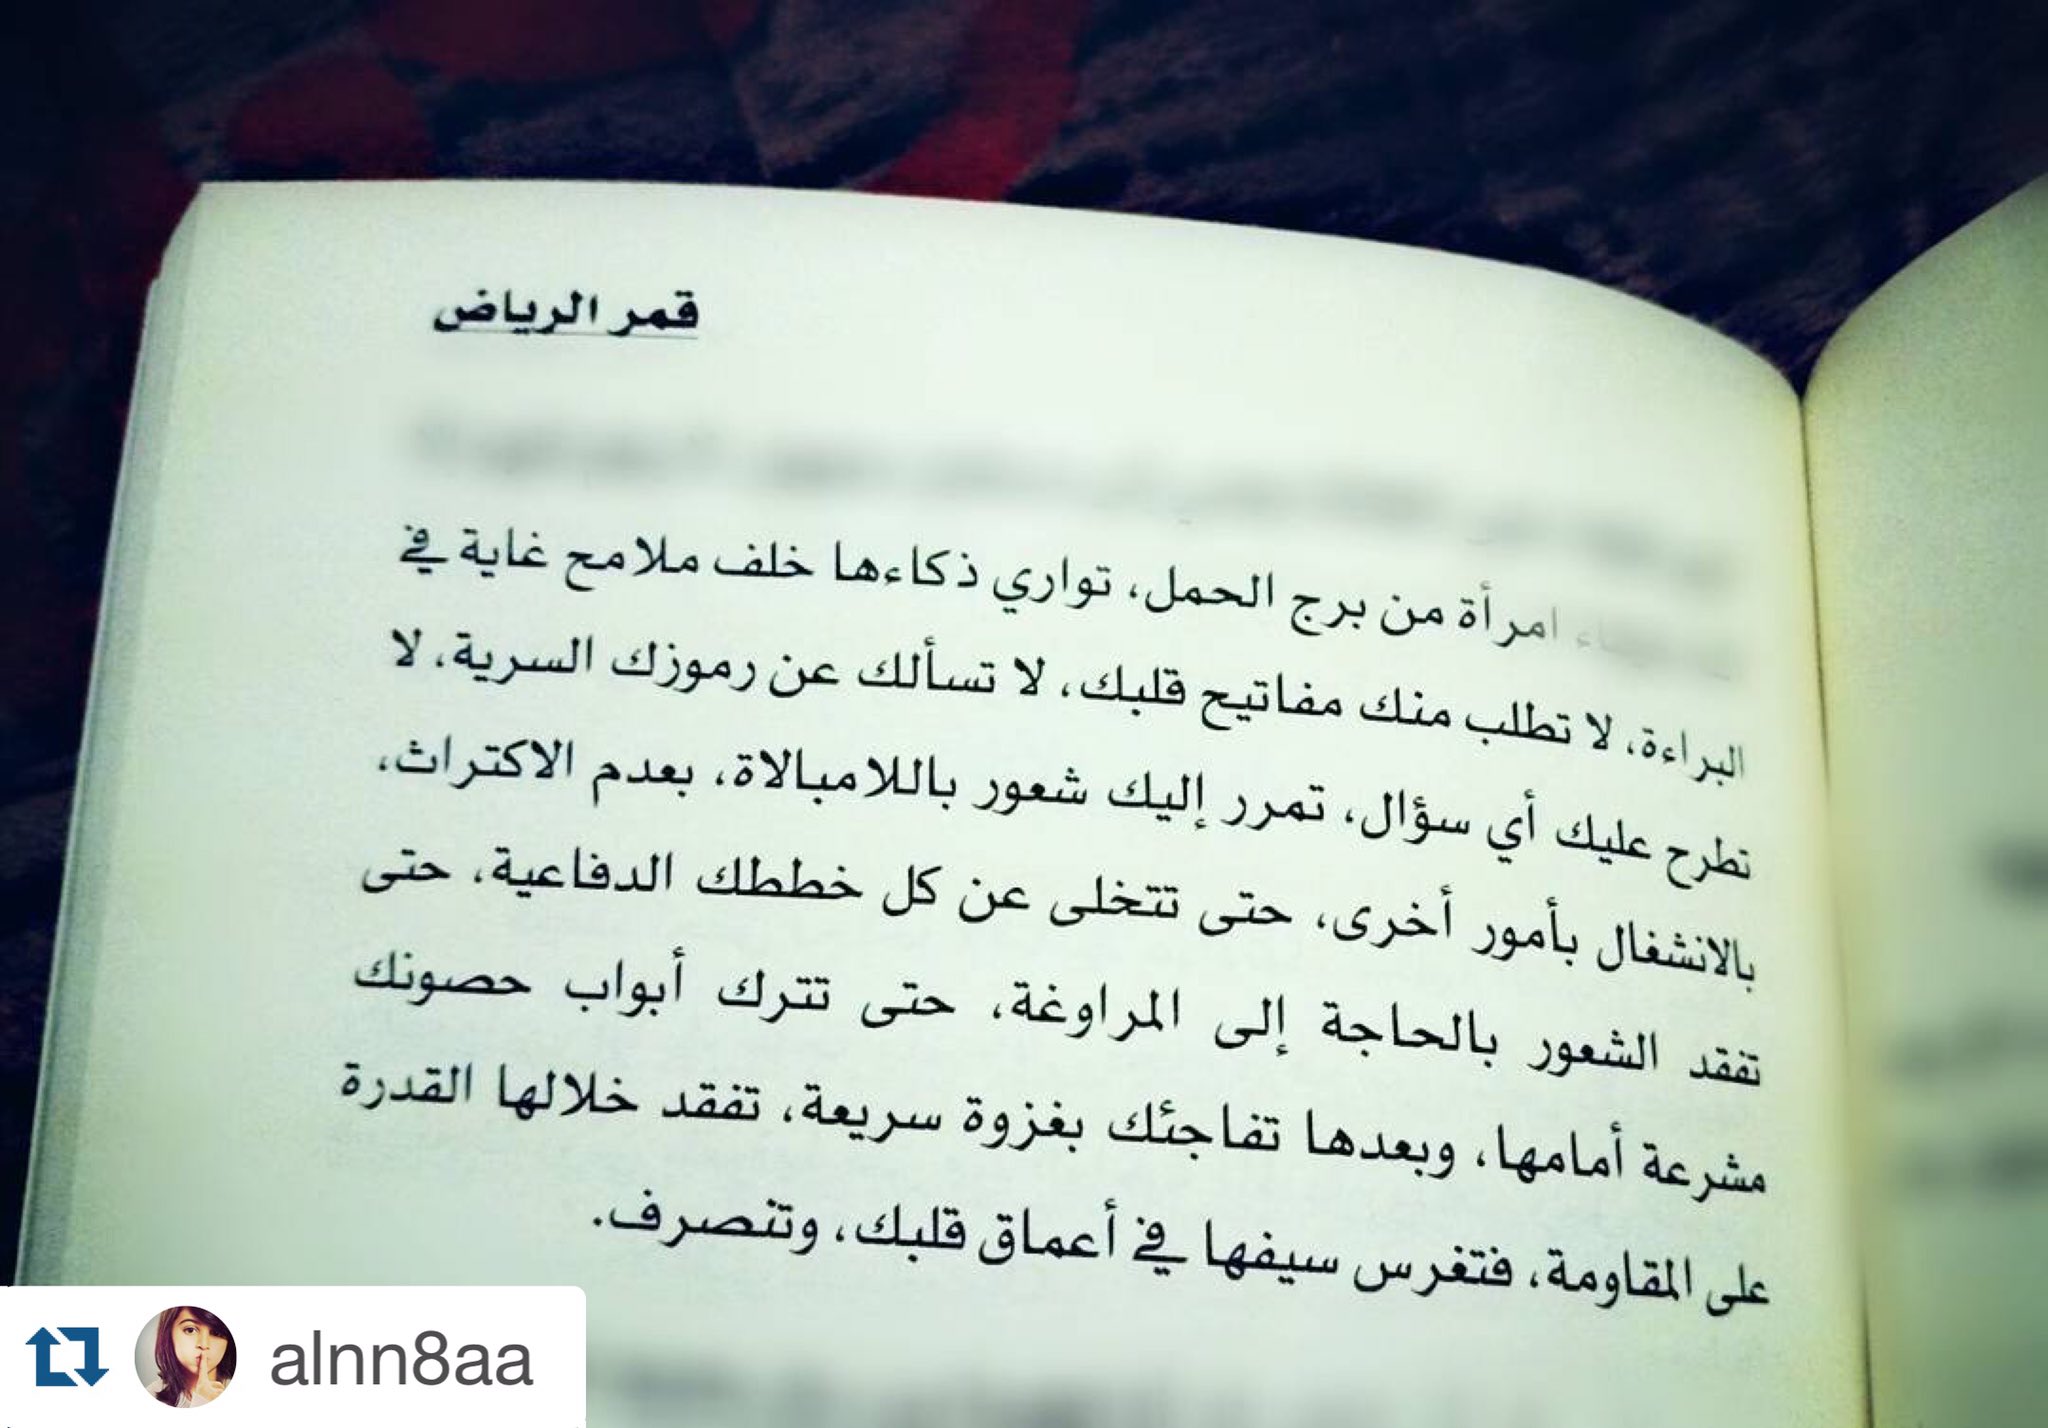 قمر الرياض
امرأة من برج الحمل، تواري ذكاءها خلف ملامح غاية في
البراءة، لا تطلب منك مفاتيح قلبك، لا تسألك عن رموزك السرية، لا
تطرح عليك أي سؤال، تمرر إليك شعور باللامبالاة، بعدم الاكتراث،
بالانشغال بأمور أخرى، حتى تتخلى عن كل خططك الدفاعية، حتى
تفقد الشعور بالحاجة إلى المراوغة، حتى تترك أبواب حصونك
مشرعة أمامها، وبعدها تفاجئك بغزوة سريعة، تفقد خلالها القدرة
على المقاومة، فتغرس سيفها في أعماق قلبك، وتنصرف.
alnn8aa